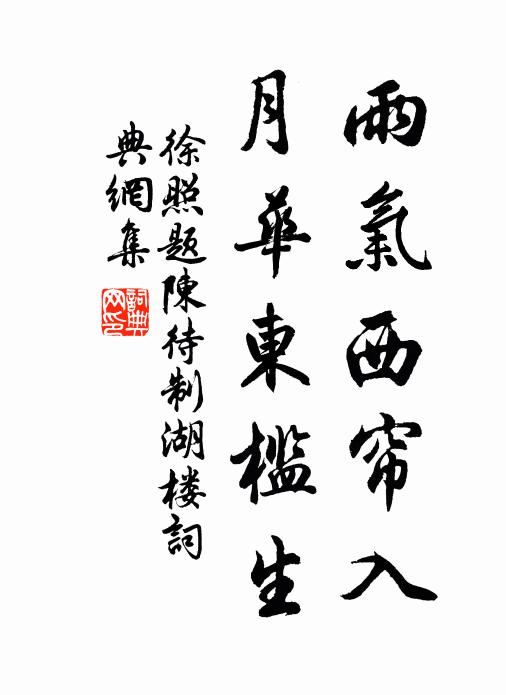 雨氣西帘入
月華東檻生
徐照题陳待制湖楼詞
典網集
詞典
网印